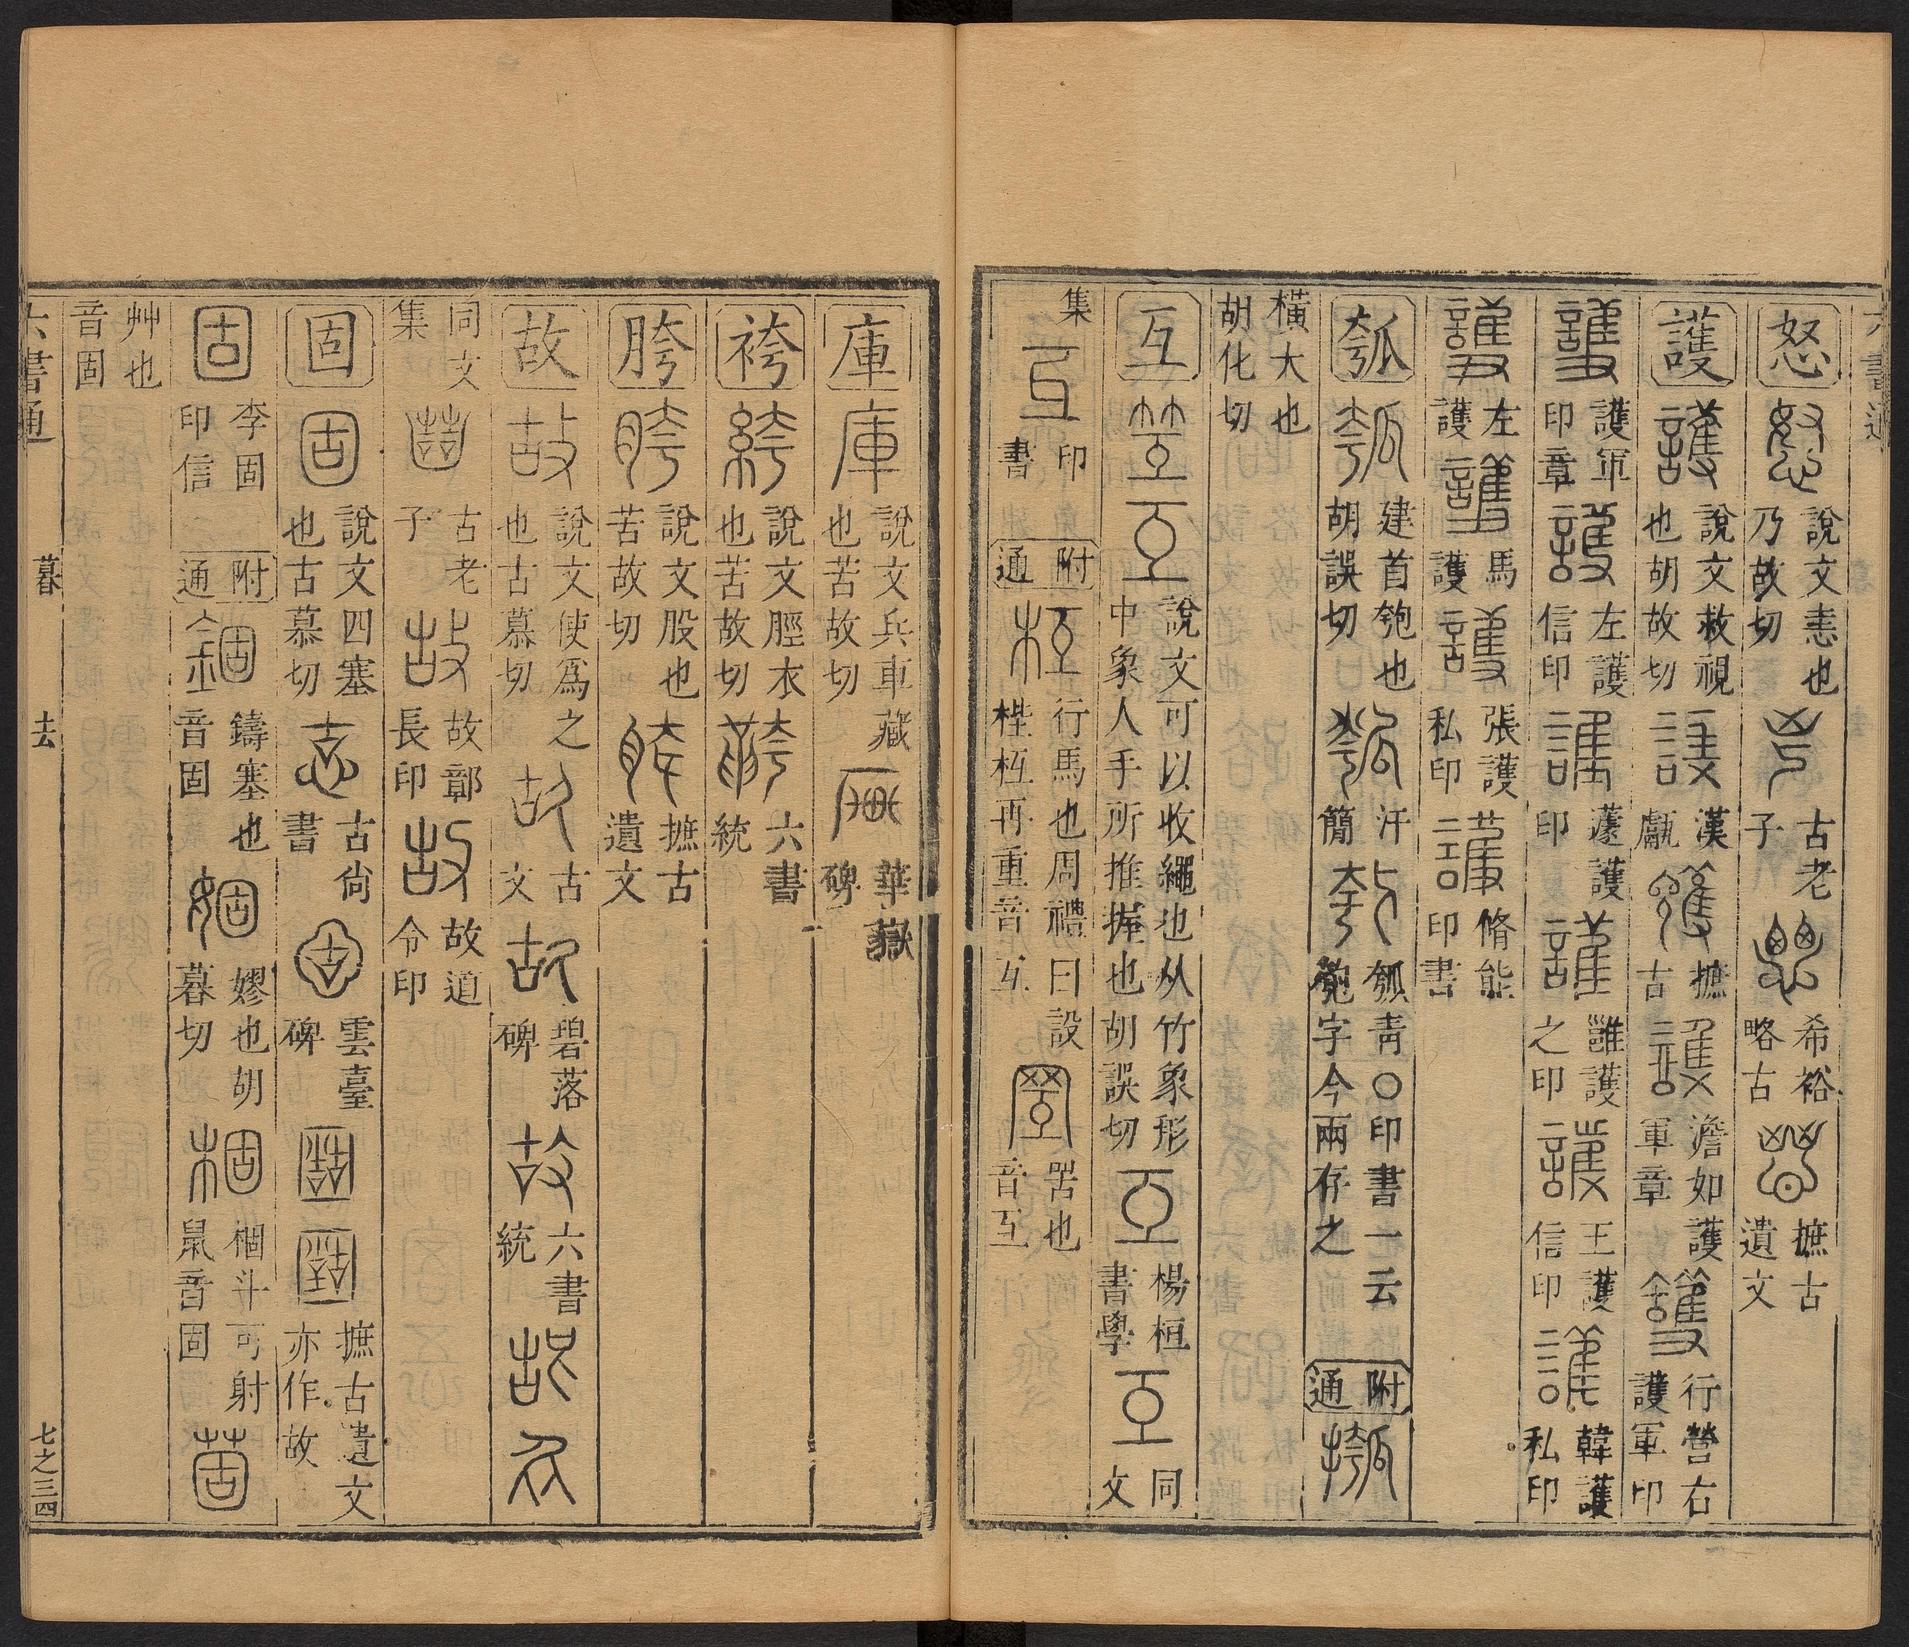 六書通
怒 怒 說文恚也乃故切 古老子 希裕略古 摭古遺文
護 護 說文救視也胡故切 護 漢甗 護 摭古 護 澹如護軍章 護 行營右護軍印
護 護軍印章 護 左護信印 護 蘧護印 護 雝護之印 護 王護信印 護 韓護私印
護 左護 護 馬護 護 張護私印 護 脩能印書
瓠 瓠 建首匏也胡誤切 瓠 汗簡 瓠 瓠青〇印書一云匏字今兩存之 附通 摦
橫大也胡化切
互 笠 互 說文可以收繩也从竹象形中象人手所推握也胡誤切 互 楊桓書學 互 同文
集 互 印書 附通 枑 行馬也周禮曰設梐枑再重音互 罟也音互
庫 庫 說文兵車藏也苦故切 華嶽碑
袴 絝 說文脛衣也苦故切 六書統
胯 胯 說文股也苦故切 胯 摭古遺文
故 故 說文使為之也古慕切 古文 故 碧落碑 故 六書統
同文集 古老子 故 故鄣長印 故 故道令印
固 固 說文四塞也古慕切 古尚書 固 雲臺碑 摭古遺文亦作故
固 李固印信 附通 錮 鑄塞也音固 婟 嫪也胡暮切 棝 棝斗可射鼠音固 崮
艸也音固
六書通 暮 去 七之三四